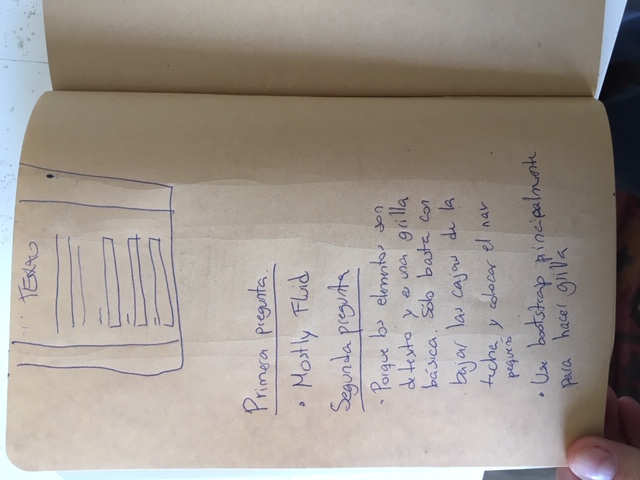 TEXTO
Primera pregunta
• Mostly Fluid
Segunda pregunta
• Porque los elementos son
de texto y es una grilla
básica. Sólo basta con
bajar las cajas de la
fecha y colocar el nav
pequeño
• Use bootstrap principalmente
para hacer grilla